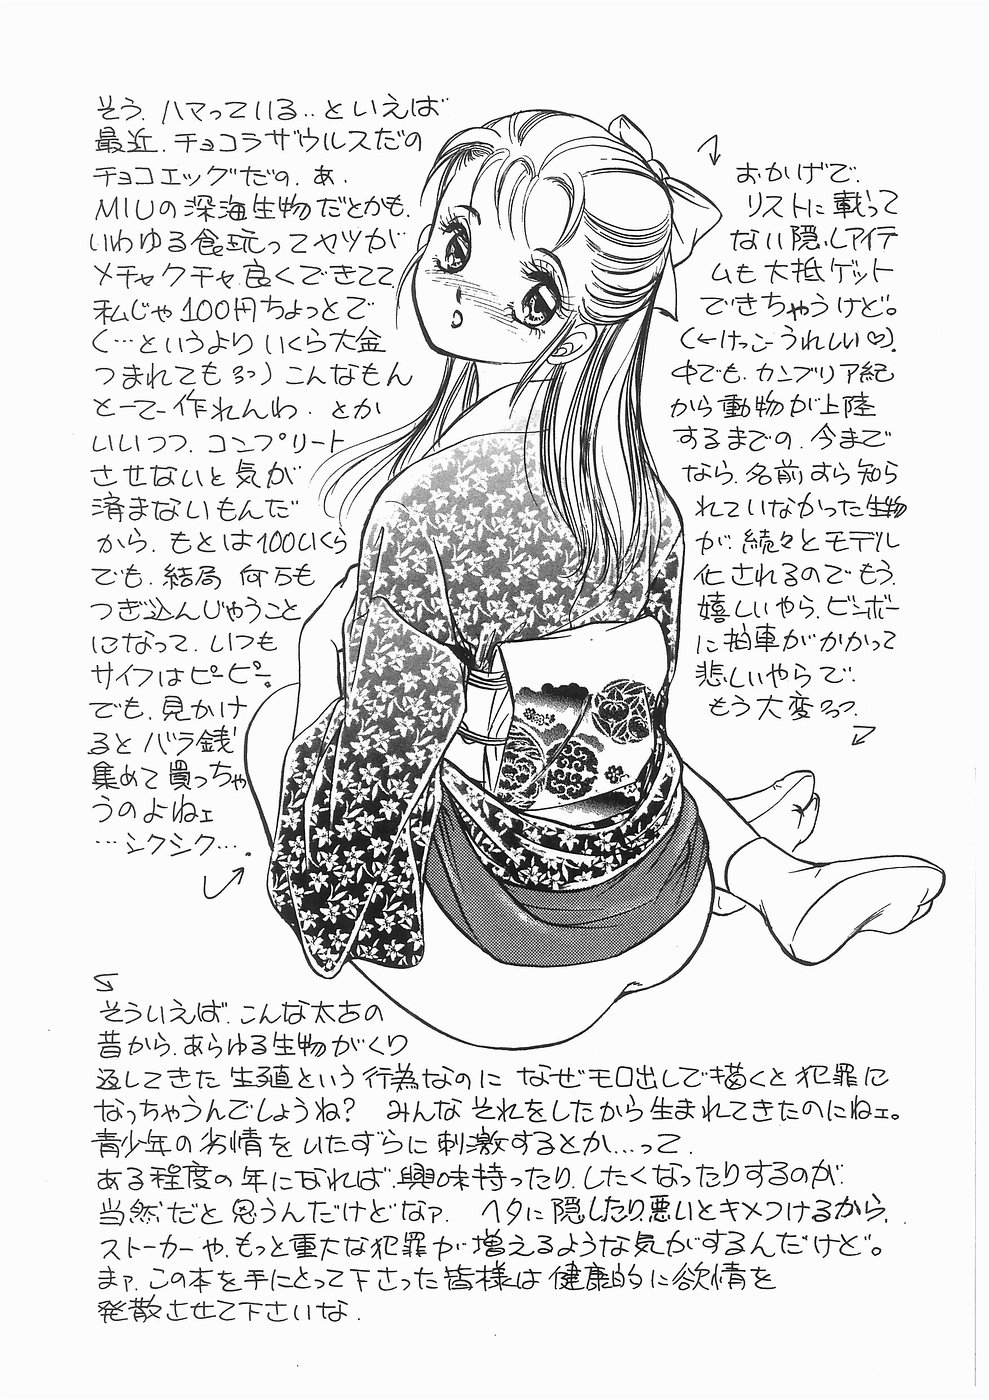 そう、ハマっている‥といえば
最近、チョコラザウルスだの
チョコエッグだの、あ、
MIUの深海生物だとかも、
いわゆる食玩ってヤツが
メチャクチャ良くできてて、
私じゃ100円ちょっとで
く…というより いくら大金
つまれても ろっ) こんなもん
とーてー作れんわ、とか
いいつつ、コンプリート
させないと気が
済まないもんだ
から、もとは100いくら
でも、結局 何万も
つぎ込んじゃうこと
になって、いつも
サイフはピーピー。
でも、見かけ
るとバラ銭
集めて買っちゃ
うのよねェ
…シクシク…。
おかげで、
リストに載って
ない隠しアイテ
ムも大抵ゲット
できちゃうけど。
(←けっこーうれしい♡)。
中でも、カンブリア紀
から動物が上陸
するまでの、今まで
なら、名前すら知ら
れていなかった生物
が、続々とモデル
化されるのでもう、
嬉しいやら、ビンボー
に拍車がかかって
悲しいやらで、
もう大変ろっ、
そういえば、こんな太古の
昔から、あらゆる生物がくり
返してきた生殖という行為なのに なぜモロ出しで描くと犯罪に
なっちゃうんでしょうね? みんなそれをしたから生まれてきたのにねェ。
青少年の劣情をいたずらに刺激するとか…って、
ある程度の年になれば、興味持ったり、したくなったりするのが、
当然だと思うんだけどなァ、ヘタに隠したり、悪いとキメつけるから、
ストーカーや、もっと重大な犯罪が増えるような気がするんだけど。
まァ、この本を手にとって下さった皆様は健康的に欲情を
発散させて下さいな、